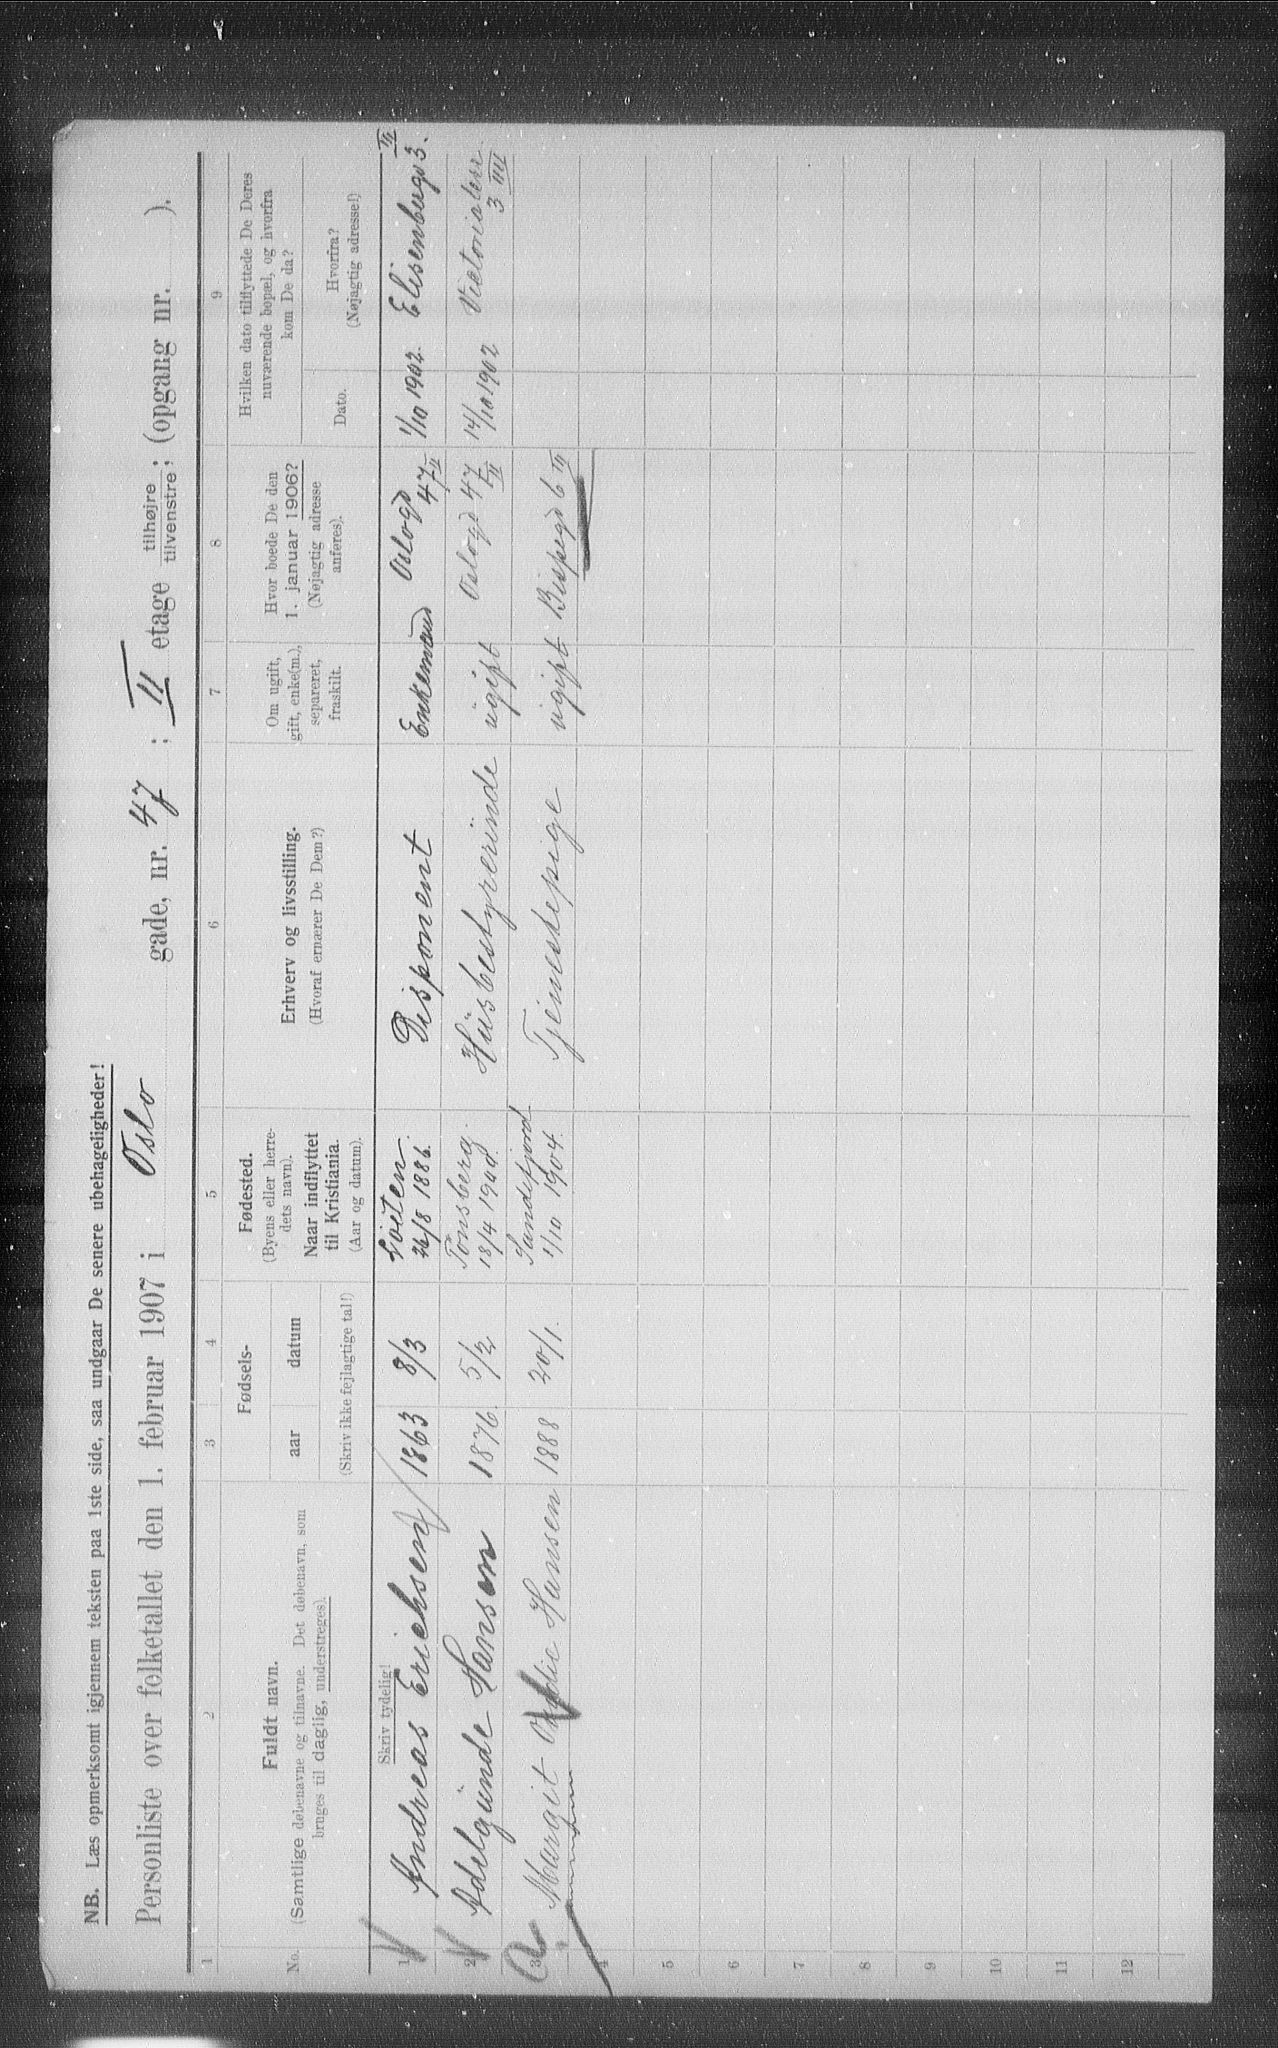 NB. Læs opmerksomt igjennem teksten paa 1ste side, saa undgaar De senere ubehageligheder!
Personliste over folketallet den 1. februar 1907 i Oslo gade, nr. 47 ; II etage tilhøjre/tilvenstre ; (opgang nr. ).
1 2 3 4 5 6 7 8 9
No.
Fuldt navn.
(Samtlige døbenavne og tilnavne. Det døbenavn, som
bruges til daglig, understreges).
Skriv tydelig!
Fødsels-
aar datum
(Skriv ikke fejlagtige tal!)
Fødested.
(Byens eller herre-
dets navn).
Naar indflyttet
til Kristiania.
(Aar og datum).
Erhverv og livsstilling.
(Hvoraf ernærer De Dem?)
Om ugift,
gift, enke(m.),
separeret,
fraskilt.
Hvor boede De den
1. januar 1906?
(Nøjagtig adresse
anføres).
Hvilken dato tilflyttede De Deres
nuværende bopæl, og hvorfra
kom De da?
Dato.
Hvorfra?
(Nøjagtig adresse!)
1 Andreas Erichsen 1863 8/3 Løiten 26/8 1886. Disponent Enkemand Oslogd 47 II 1/10 1902. Elisenbugd 3. II
2 Adelgunde Hansen 1876. 5/2 Tønsberg. 18/4 1900. Husbestyrerinde ugift Oslogd 47 II 14/10 1902 Victoriaterr. 3 III
3 Margit Hansen 1888 20/1. Sandefjord 1/10 1904. Tjenestepige ugift Bispegd 6 III
4
5
6
7
8
9
10
11
12